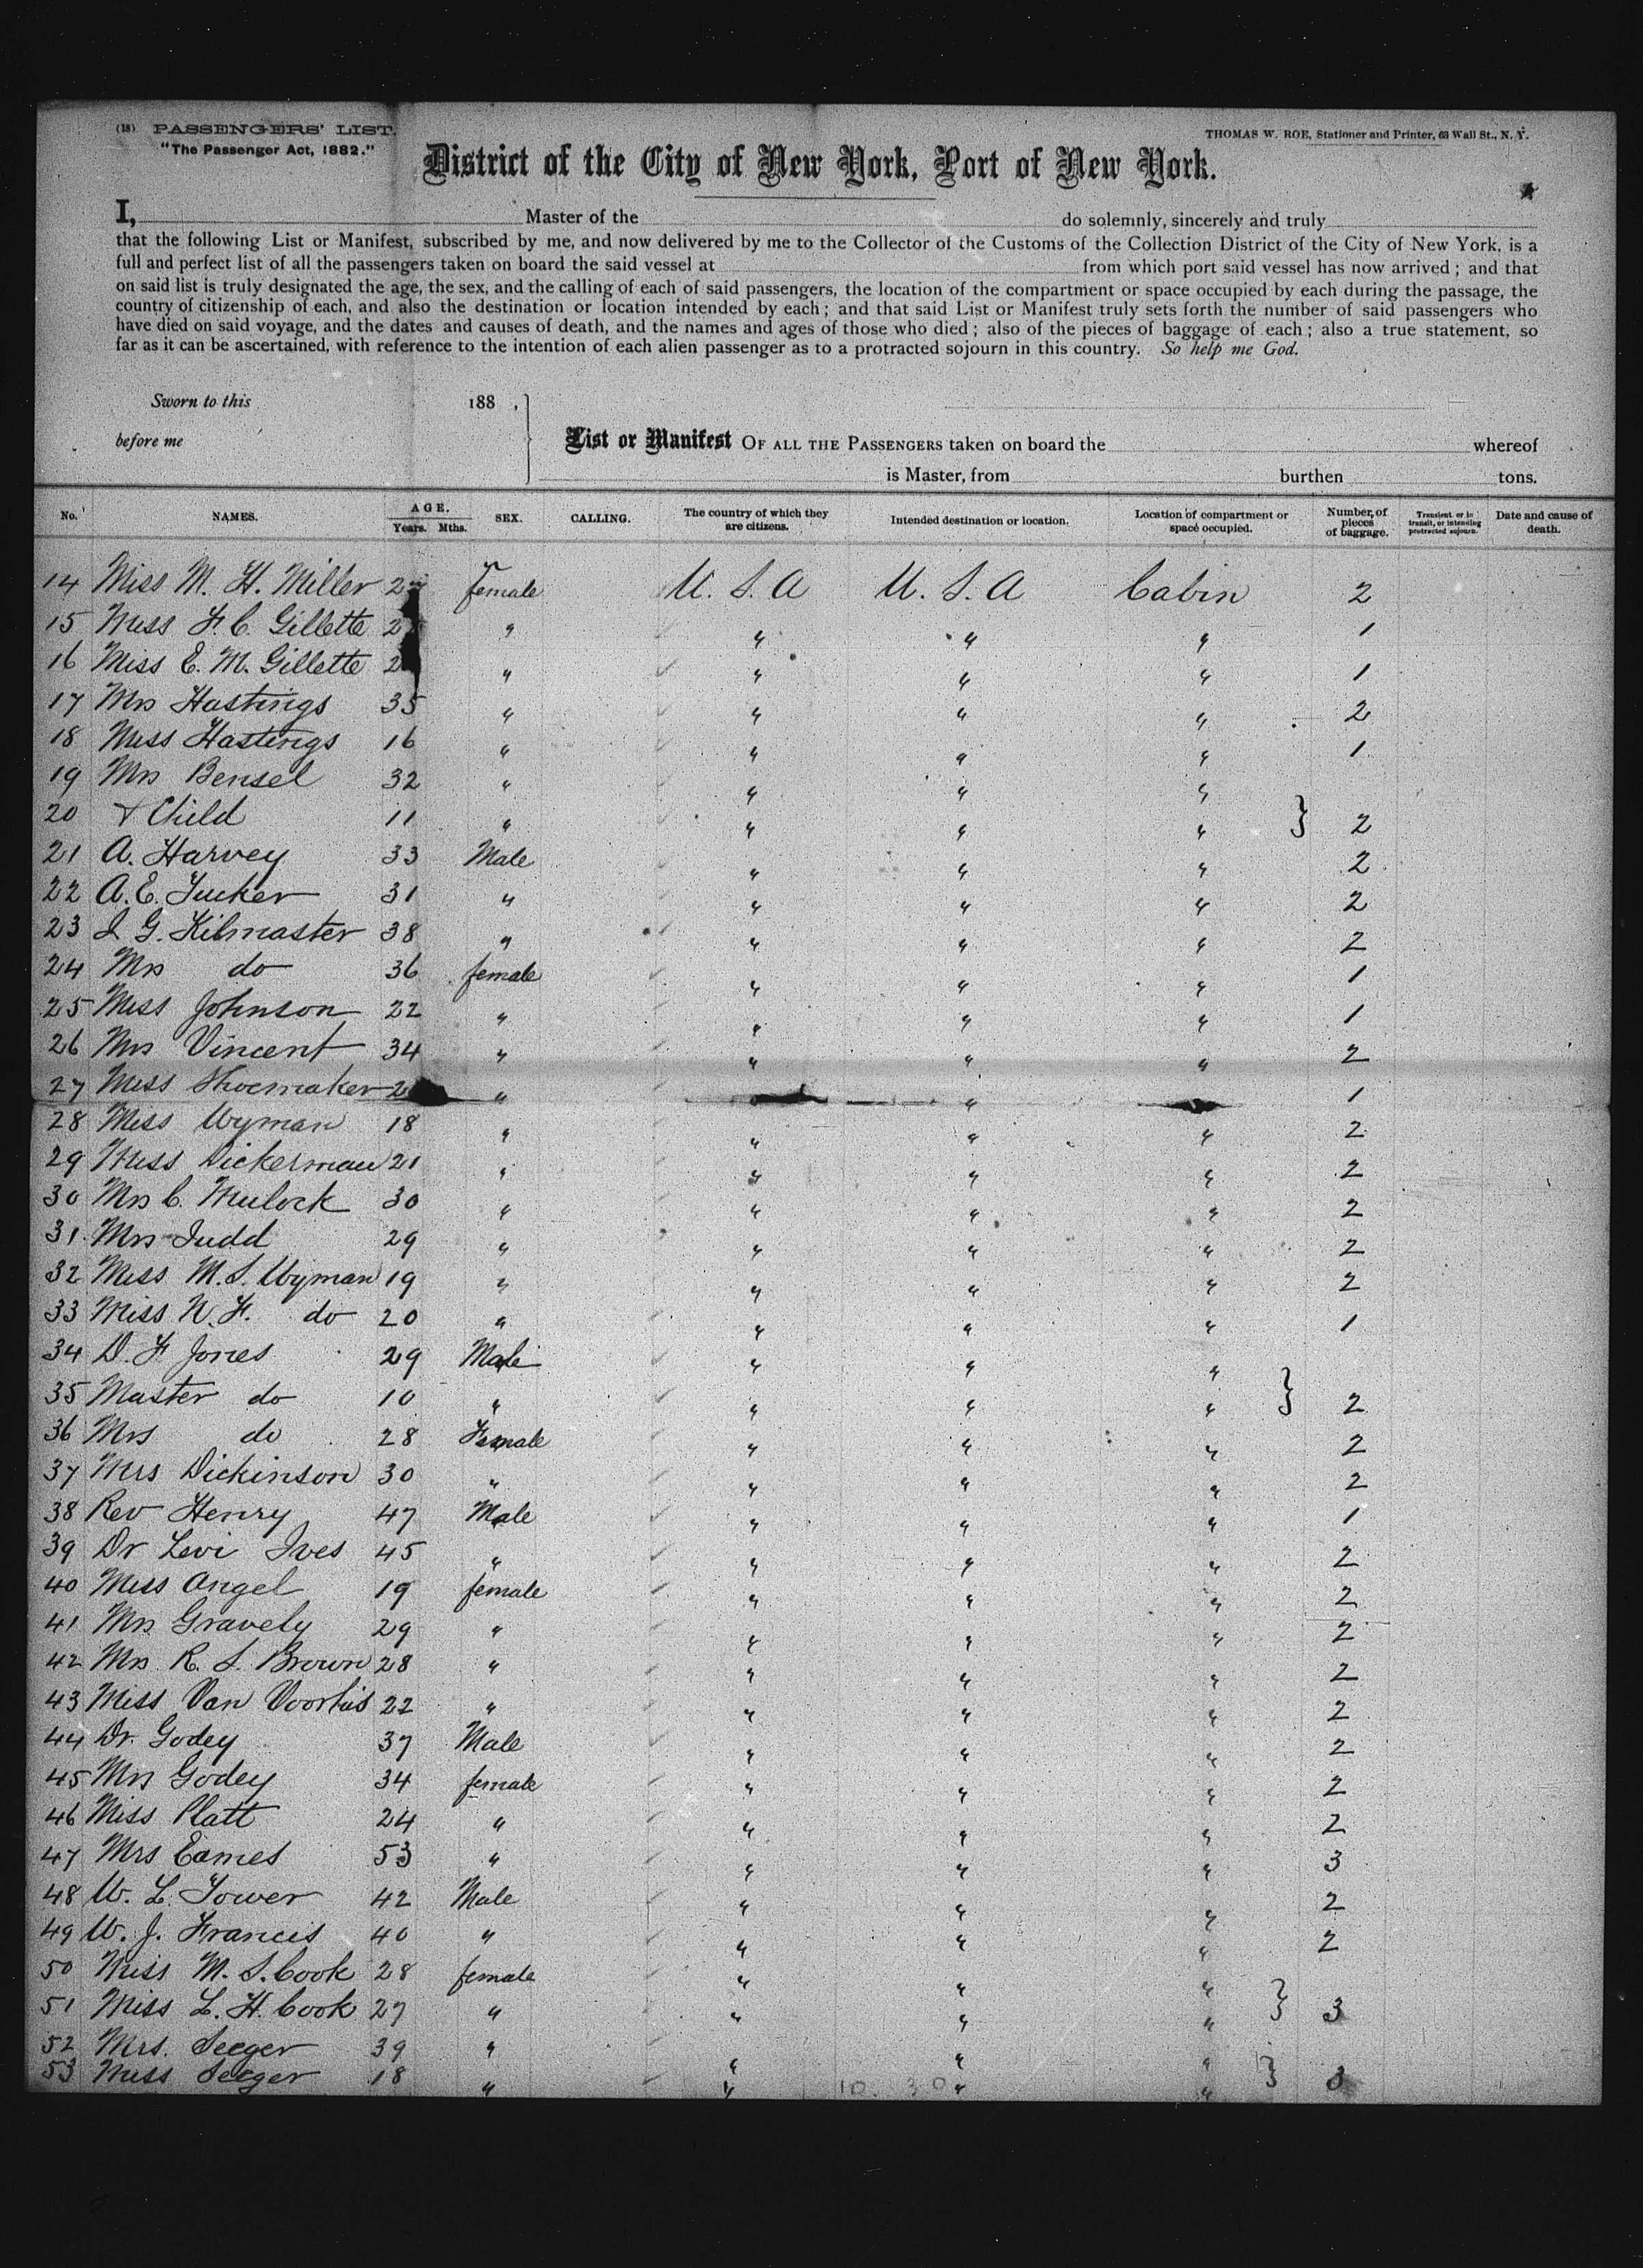 (18) PASSENGERS' LIST.
"The Passenger Act, 1882."
THOMAS W. ROE, Stationer and Printer, 63 Wall St., N. Y.
District of the City of New York, Port of New York.
I, Master of the do solemnly, sincerely and truly
that the following List or Manifest, subscribed by me, and now delivered by me to the Collector of the Customs of the Collection District of the City of New York, is a
full and perfect list of all the passengers taken on board the said vessel at from which port said vessel has now arrived; and that
on said list is truly designated the age, the sex, and the calling of each of said passengers, the location of the compartment or space occupied by each during the passage, the
country of citizenship of each, and also the destination or location intended by each; and that said List or Manifest truly sets forth the number of said passengers who
have died on said voyage, and the dates and causes of death, and the names and ages of those who died; also of the pieces of baggage of each; also a true statement, so
far as it can be ascertained, with reference to the intention of each alien passenger as to a protracted sojourn in this country. So help me God.
Sworn to this 188 ,
before me
List or Manifest OF ALL THE PASSENGERS taken on board the whereof
is Master, from burthen tons.
No. NAMES. AGE. Years. Mths. SEX. CALLING. The country of which they are citizens. Intended destination or location. Location of compartment or space occupied. Number of pieces of baggage. Transient or in transit, or intending protracted sojourn. Date and cause of death.
14 Miss M. H. Miller female U. S. A U. S. A Cabin 2
15 Miss F. C. Gillette " " " " 1
16 Miss E. M. Gillette " " " " 1
17 Mrs Hastings 35 " " " " 2
18 Miss Hastings 16 " " " " 1
19 Mrs Bensel 32 " " " "
20 & Child 11 " " " " } 2
21 A. Harvey 33 Male " " " 2
22 A. E. Tucker 31 " " " " 2
23 I G. Kilmaster 38 " " " " 2
24 Mrs do 36 female " " " 1
25 Miss Johnson 22 " " " " 1
26 Mrs Vincent 34 " " " " 2
27 Miss Shoemaker " " 1
28 Miss Wyman 18 " " " " 2
29 Miss Dickerman 21 " " " " 2
30 Mrs C. Mulock 30 " " " " 2
31 Mrs Judd 29 " " " " 2
32 Miss M. S. Wyman 19 " " " " 2
33 Miss N. F. do 20 " " " " 1
34 D. F Jones 29 Male " " "
35 Master do 10 " " " " } 2
36 Mrs do 28 Female " " " 2
37 Mrs Dickinson 30 " " " " 2
38 Rev Henry 47 Male " " " 1
39 Dr Levi Ives 45 " " " " 2
40 Miss Angel 19 female " " " 2
41 Mrs Gravely 29 " " " " 2
42 Mrs R. S. Brown 28 " " " " 2
43 Miss Van Voorhis 22 " " " " 2
44 Dr. Godey 37 Male " " " 2
45 Mrs Godey 34 female " " " 2
46 Miss Platt 24 " " " " 2
47 Mrs Eames 53 " " " " 3
48 W. L. Tower 42 Male " " " 2
49 W. J. Francis 40 " " " " 2
50 Miss M. S. Cook 28 female " " "
51 Miss L. H. Cook 27 " " " " } 3
52 Mrs. Seeger 39 " " " "
53 Miss Seeger 18 " " " " } 3
10. 30